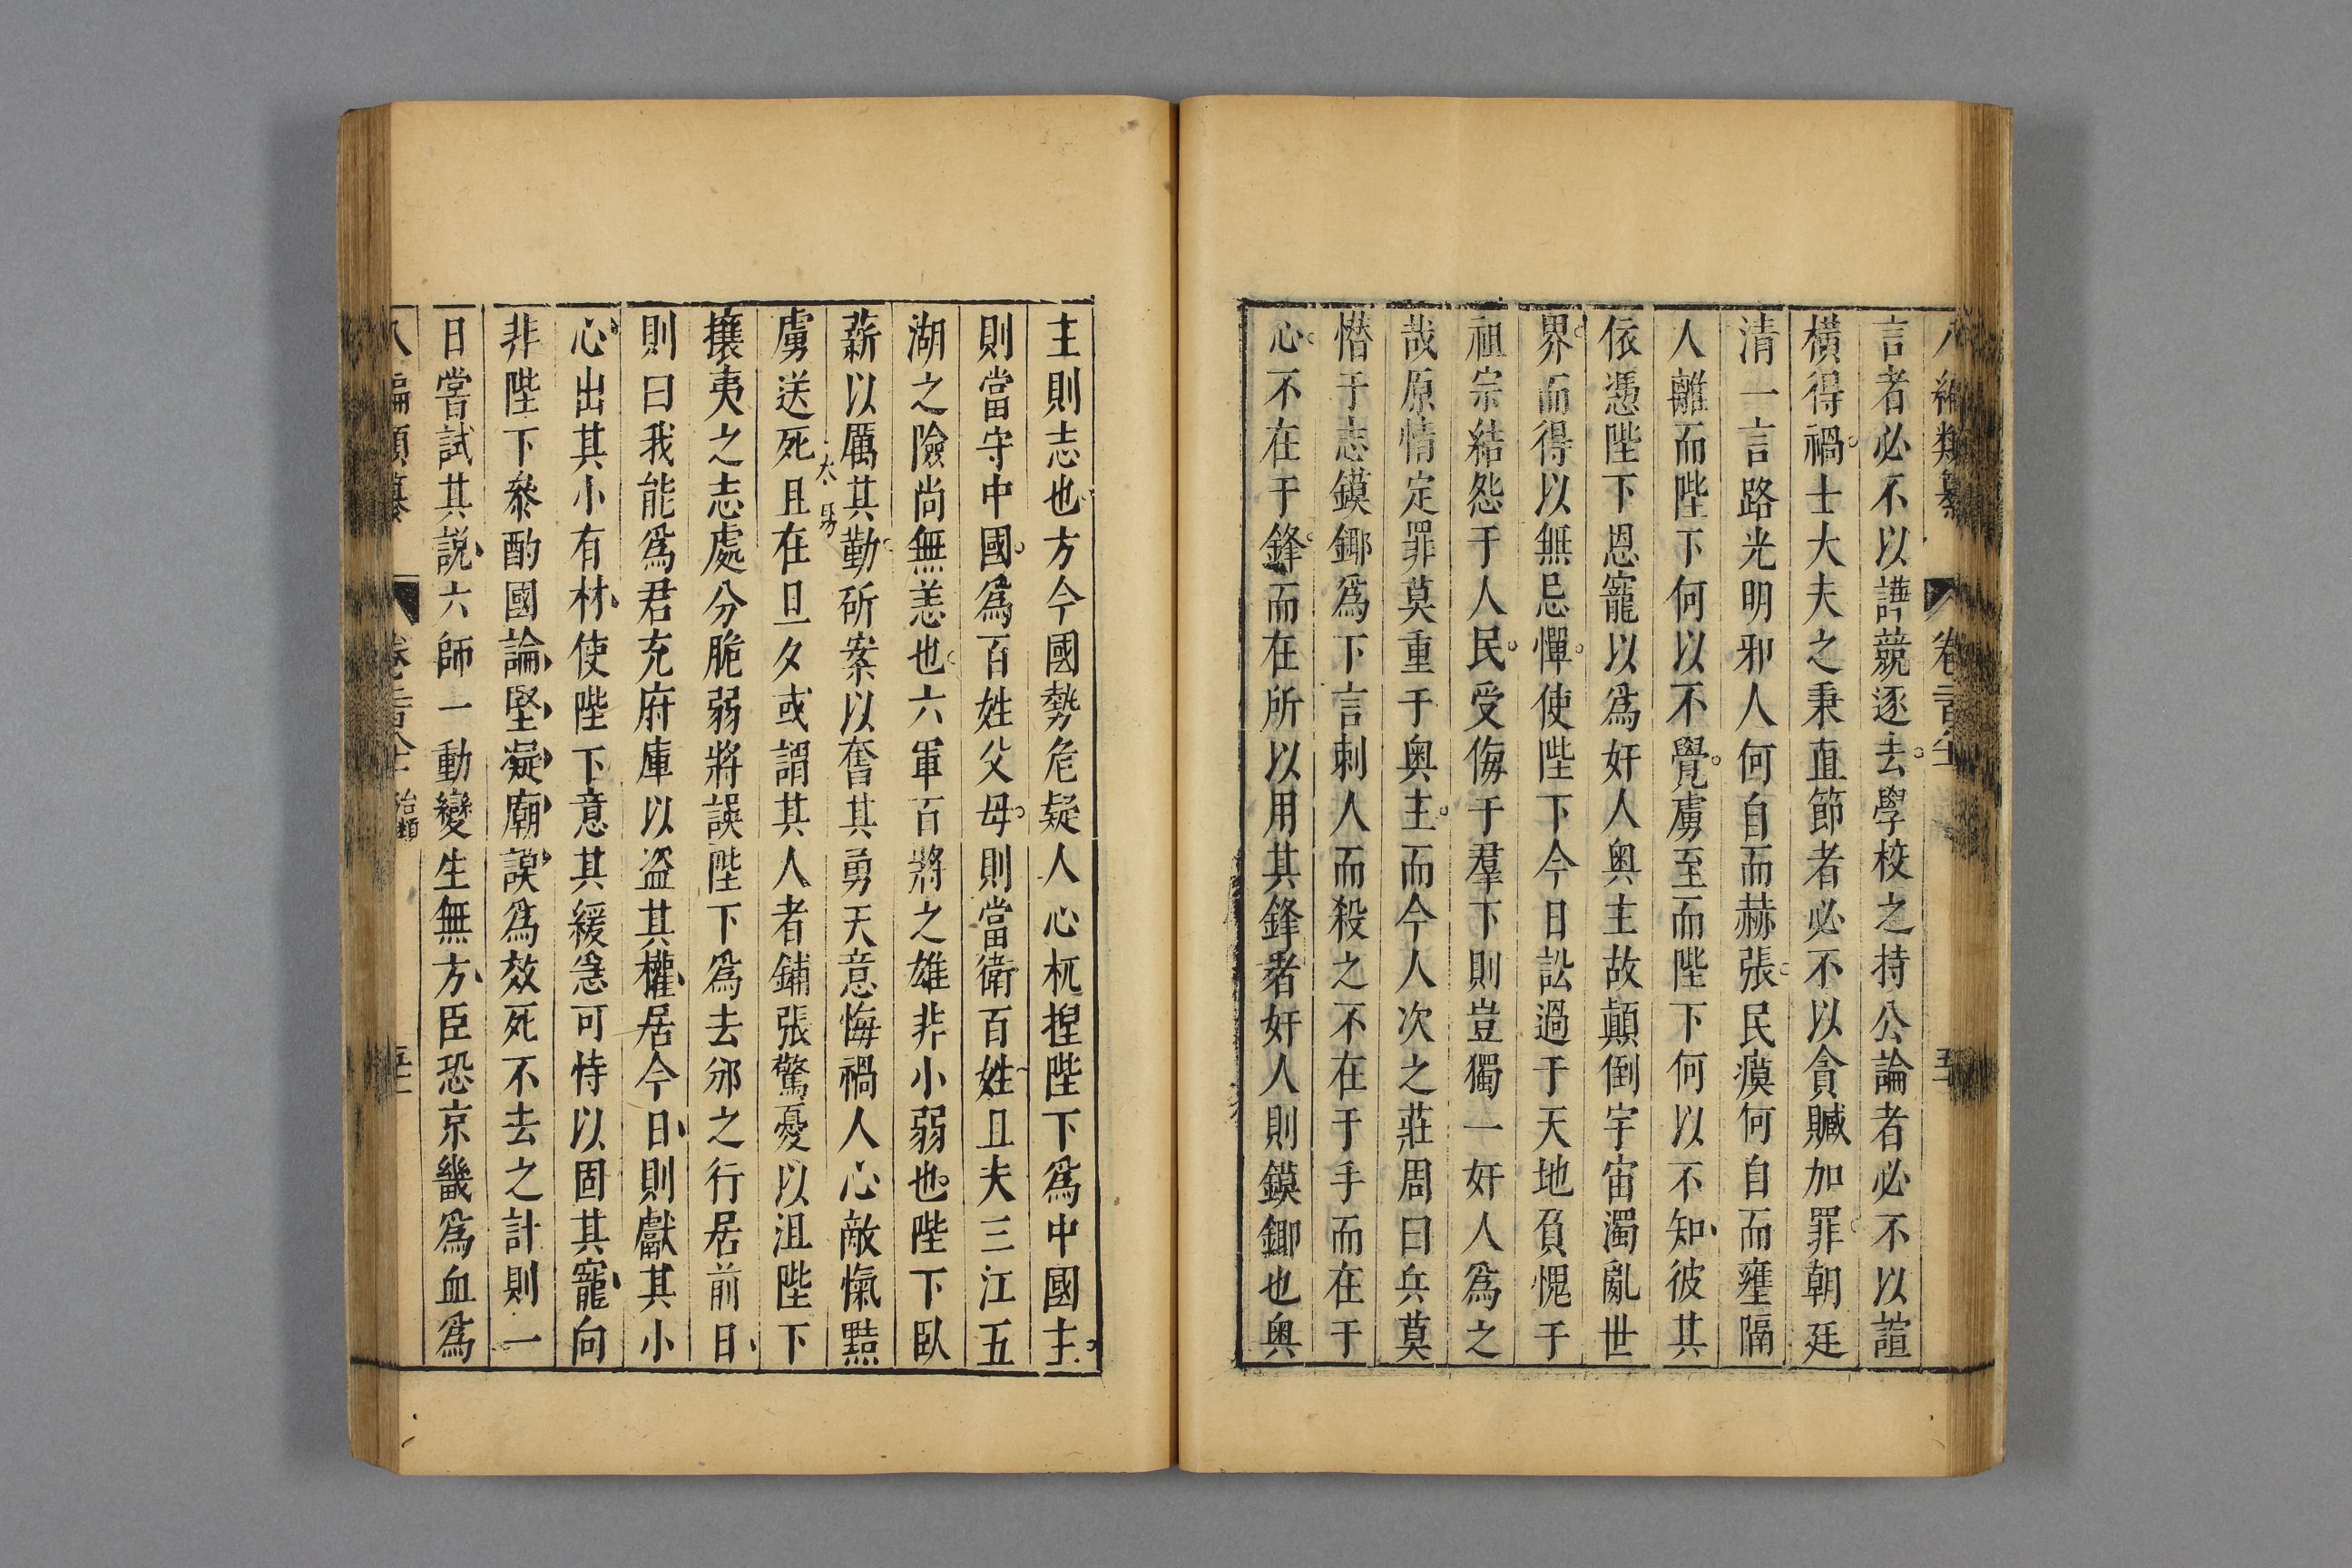 八編類纂 卷 百 五
言者必不以譁競逐去學校之持公論者必不以諠
橫得禍士大夫之秉直節者必不以貪贓加罪朝廷
清一言路光明邪人何自而赫張民瘼何自而壅隔
人離而陛下何以不覺虜至而陛下何以不知彼其
依憑陛下恩寵以爲奸人奥主故顛倒宇宙濁亂世
界而得以無忌憚使陛下今日訟過于天地負愧于
祖宗結怨于人民受侮于羣下則豈獨一奸人爲之
哉原情定罪莫重于奥主而今人次之莊周曰兵莫
憯于志鏌鋣爲下言刺人而殺之不在于手而在于
心不在于鋒而在所以用其鋒者奸人則鏌鋣也奥
主則志也方今國勢危疑人心杌揑陛下爲中國主
則當守中國爲百姓父母則當衛百姓且夫三江五
湖之險尚無恙也六軍百將之雄非小弱也陛下臥
薪以厲其勤斫案以奮其勇天意悔禍人心敵愾黠
虜送死且在旦夕或謂其人者鋪張驚憂以沮陛下
攘夷之志處分脆弱將誤陛下爲去邠之行居前日
則曰我能爲君充府庫以盗其權居今日則獻其小
心出其小有材使陛下意其緩急可恃以固其寵向
非陛下叅酌國論堅凝廟謨爲效死不去之計則一
日嘗試其説六師一動變生無方臣恐京畿爲血爲
八編類纂 卷 百 治類